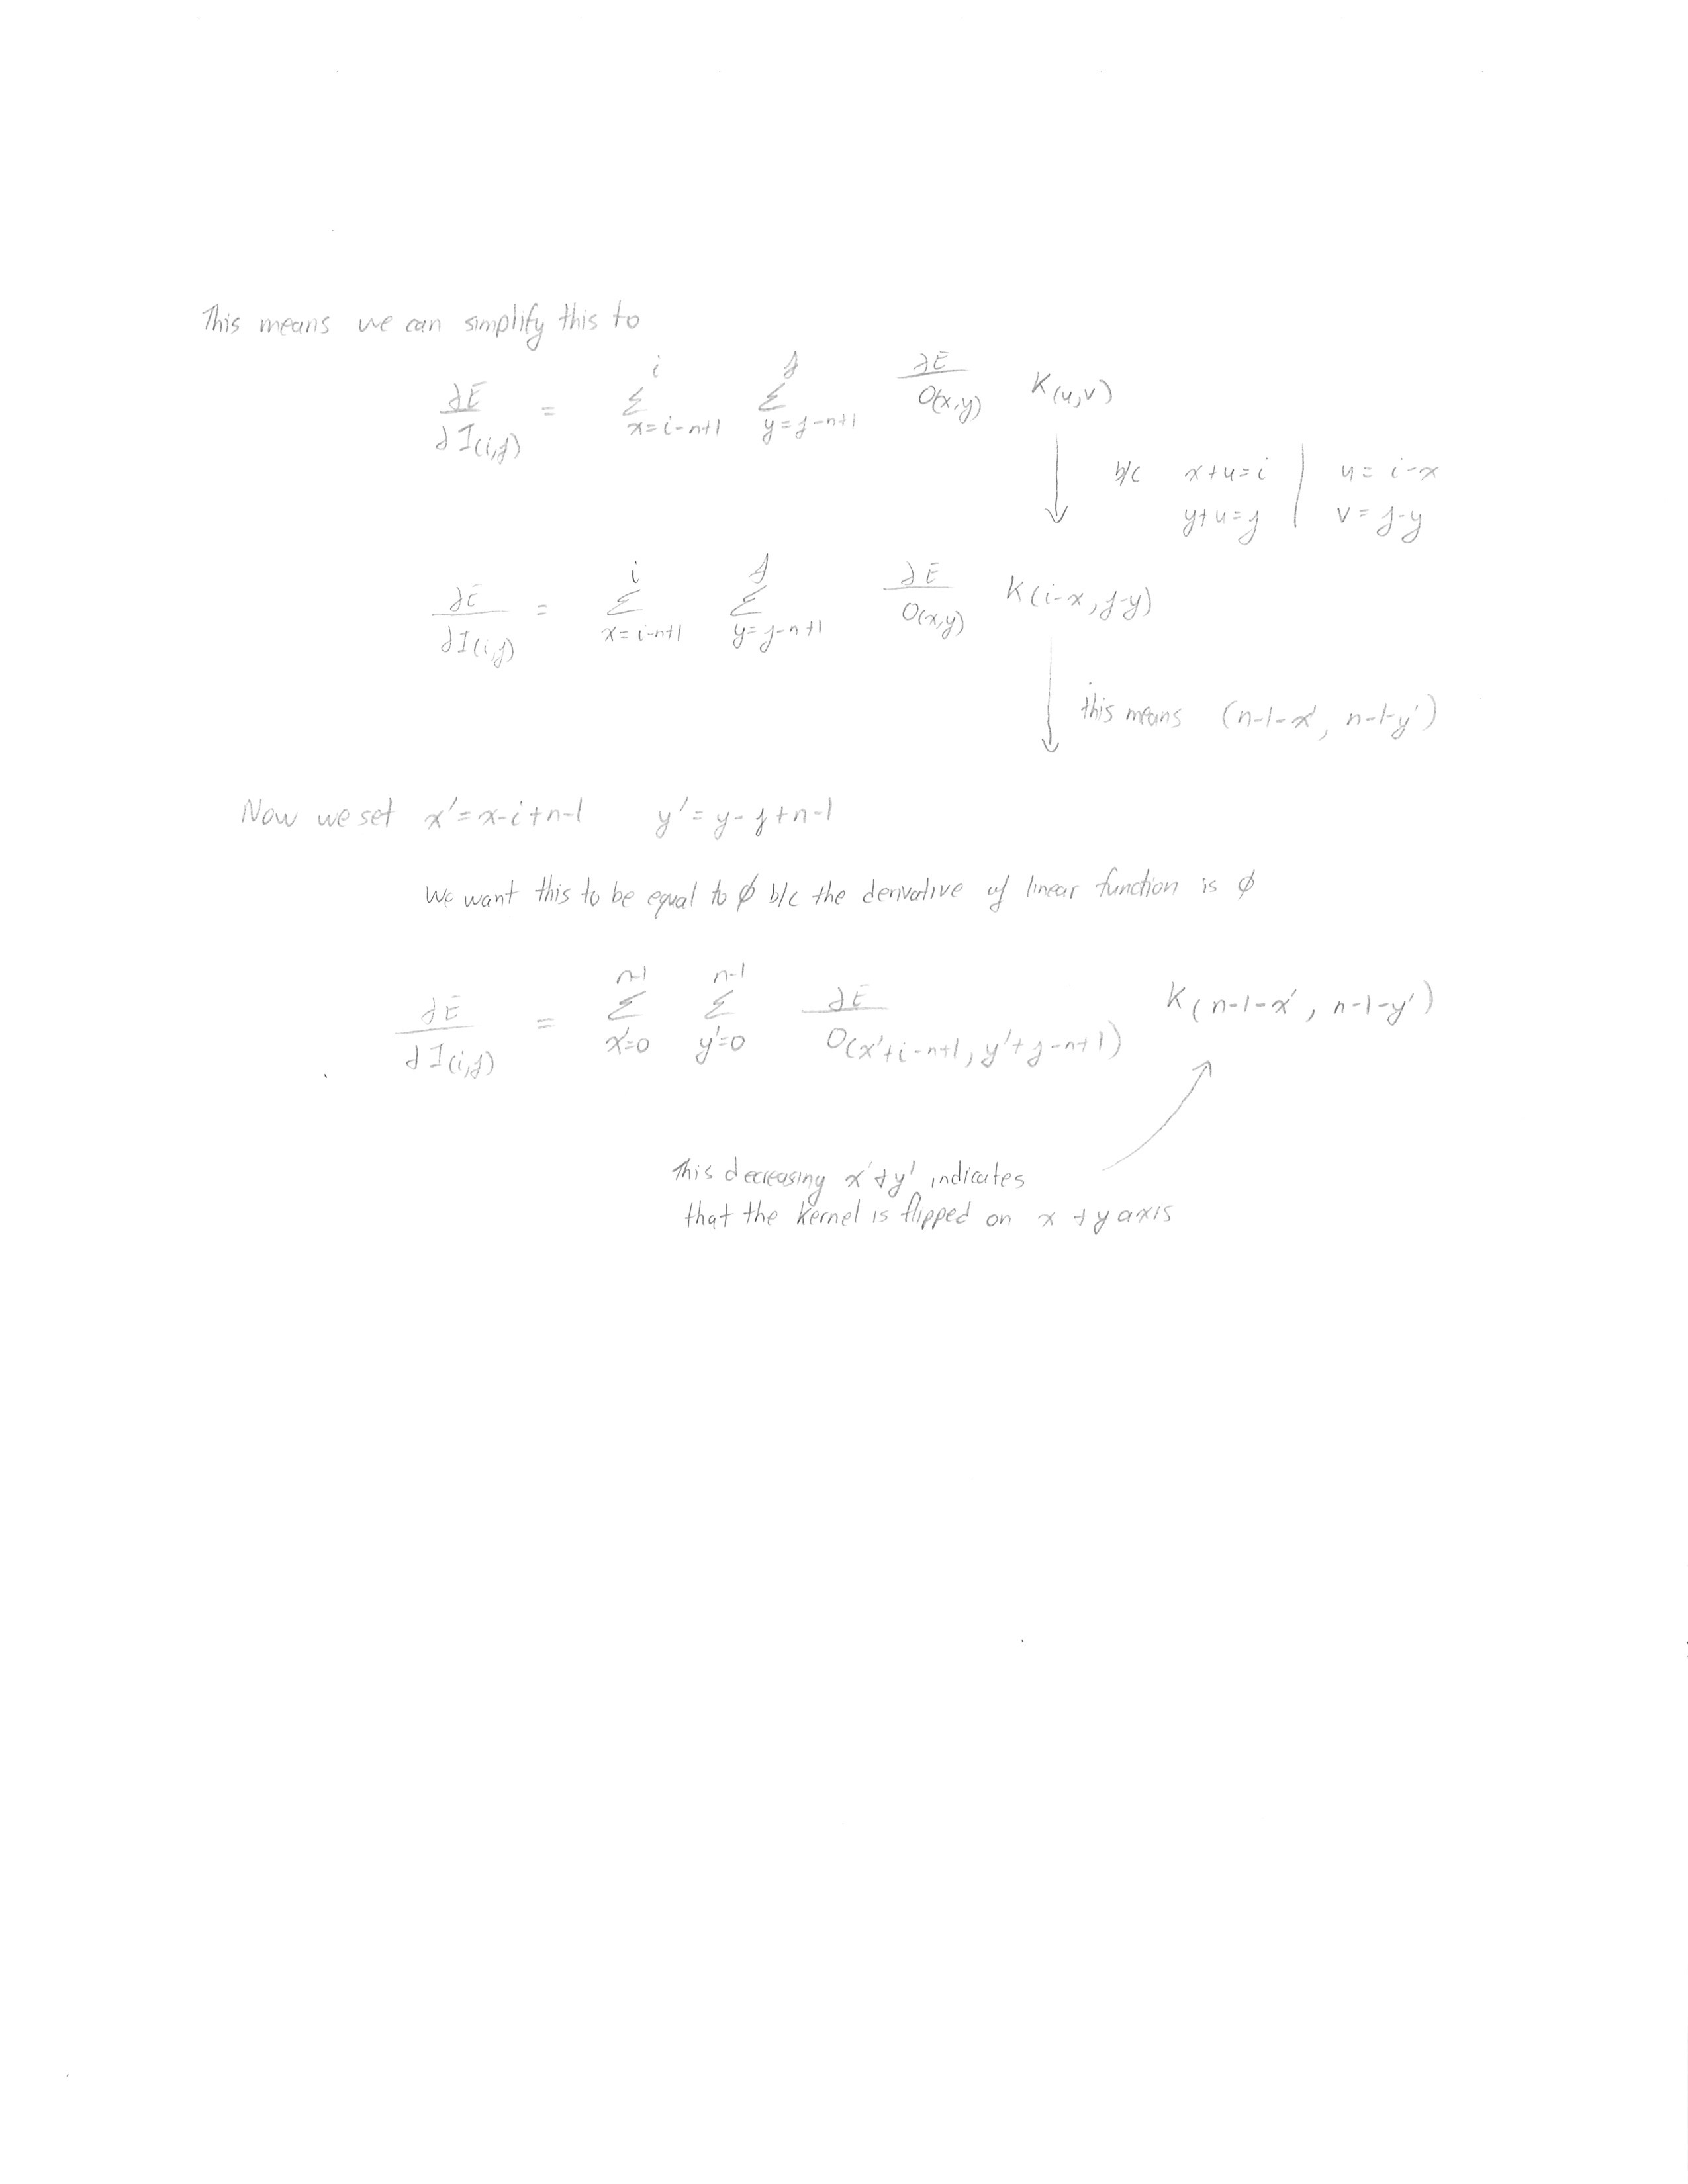 This means we can simplify this to
∂E/∂I(i,j) = Σ_{x=i-n+1}^{i} Σ_{y=j-n+1}^{j} ∂E/O(x,y) K(u,v)
b/c x+u=i | u= i-x
y+u=j | v= j-y
∂E/∂I(i,j) = Σ_{x=i-n+1}^{i} Σ_{y=j-n+1}^{j} ∂E/O(x,y) K(i-x, j-y)
this means (n-1-x', n-1-y')
Now we set x'=x-i+n-1 y'=y-j+n-1
We want this to be equal to ∅ b/c the derivative of linear function is ∅
∂E/∂I(i,j) = Σ_{x'=0}^{n-1} Σ_{y'=0}^{n-1} ∂E/O(x'+i-n+1, y'+j-n+1) K(n-1-x', n-1-y')
This decreasing x'+y' indicates
that the kernel is flipped on x + y axis